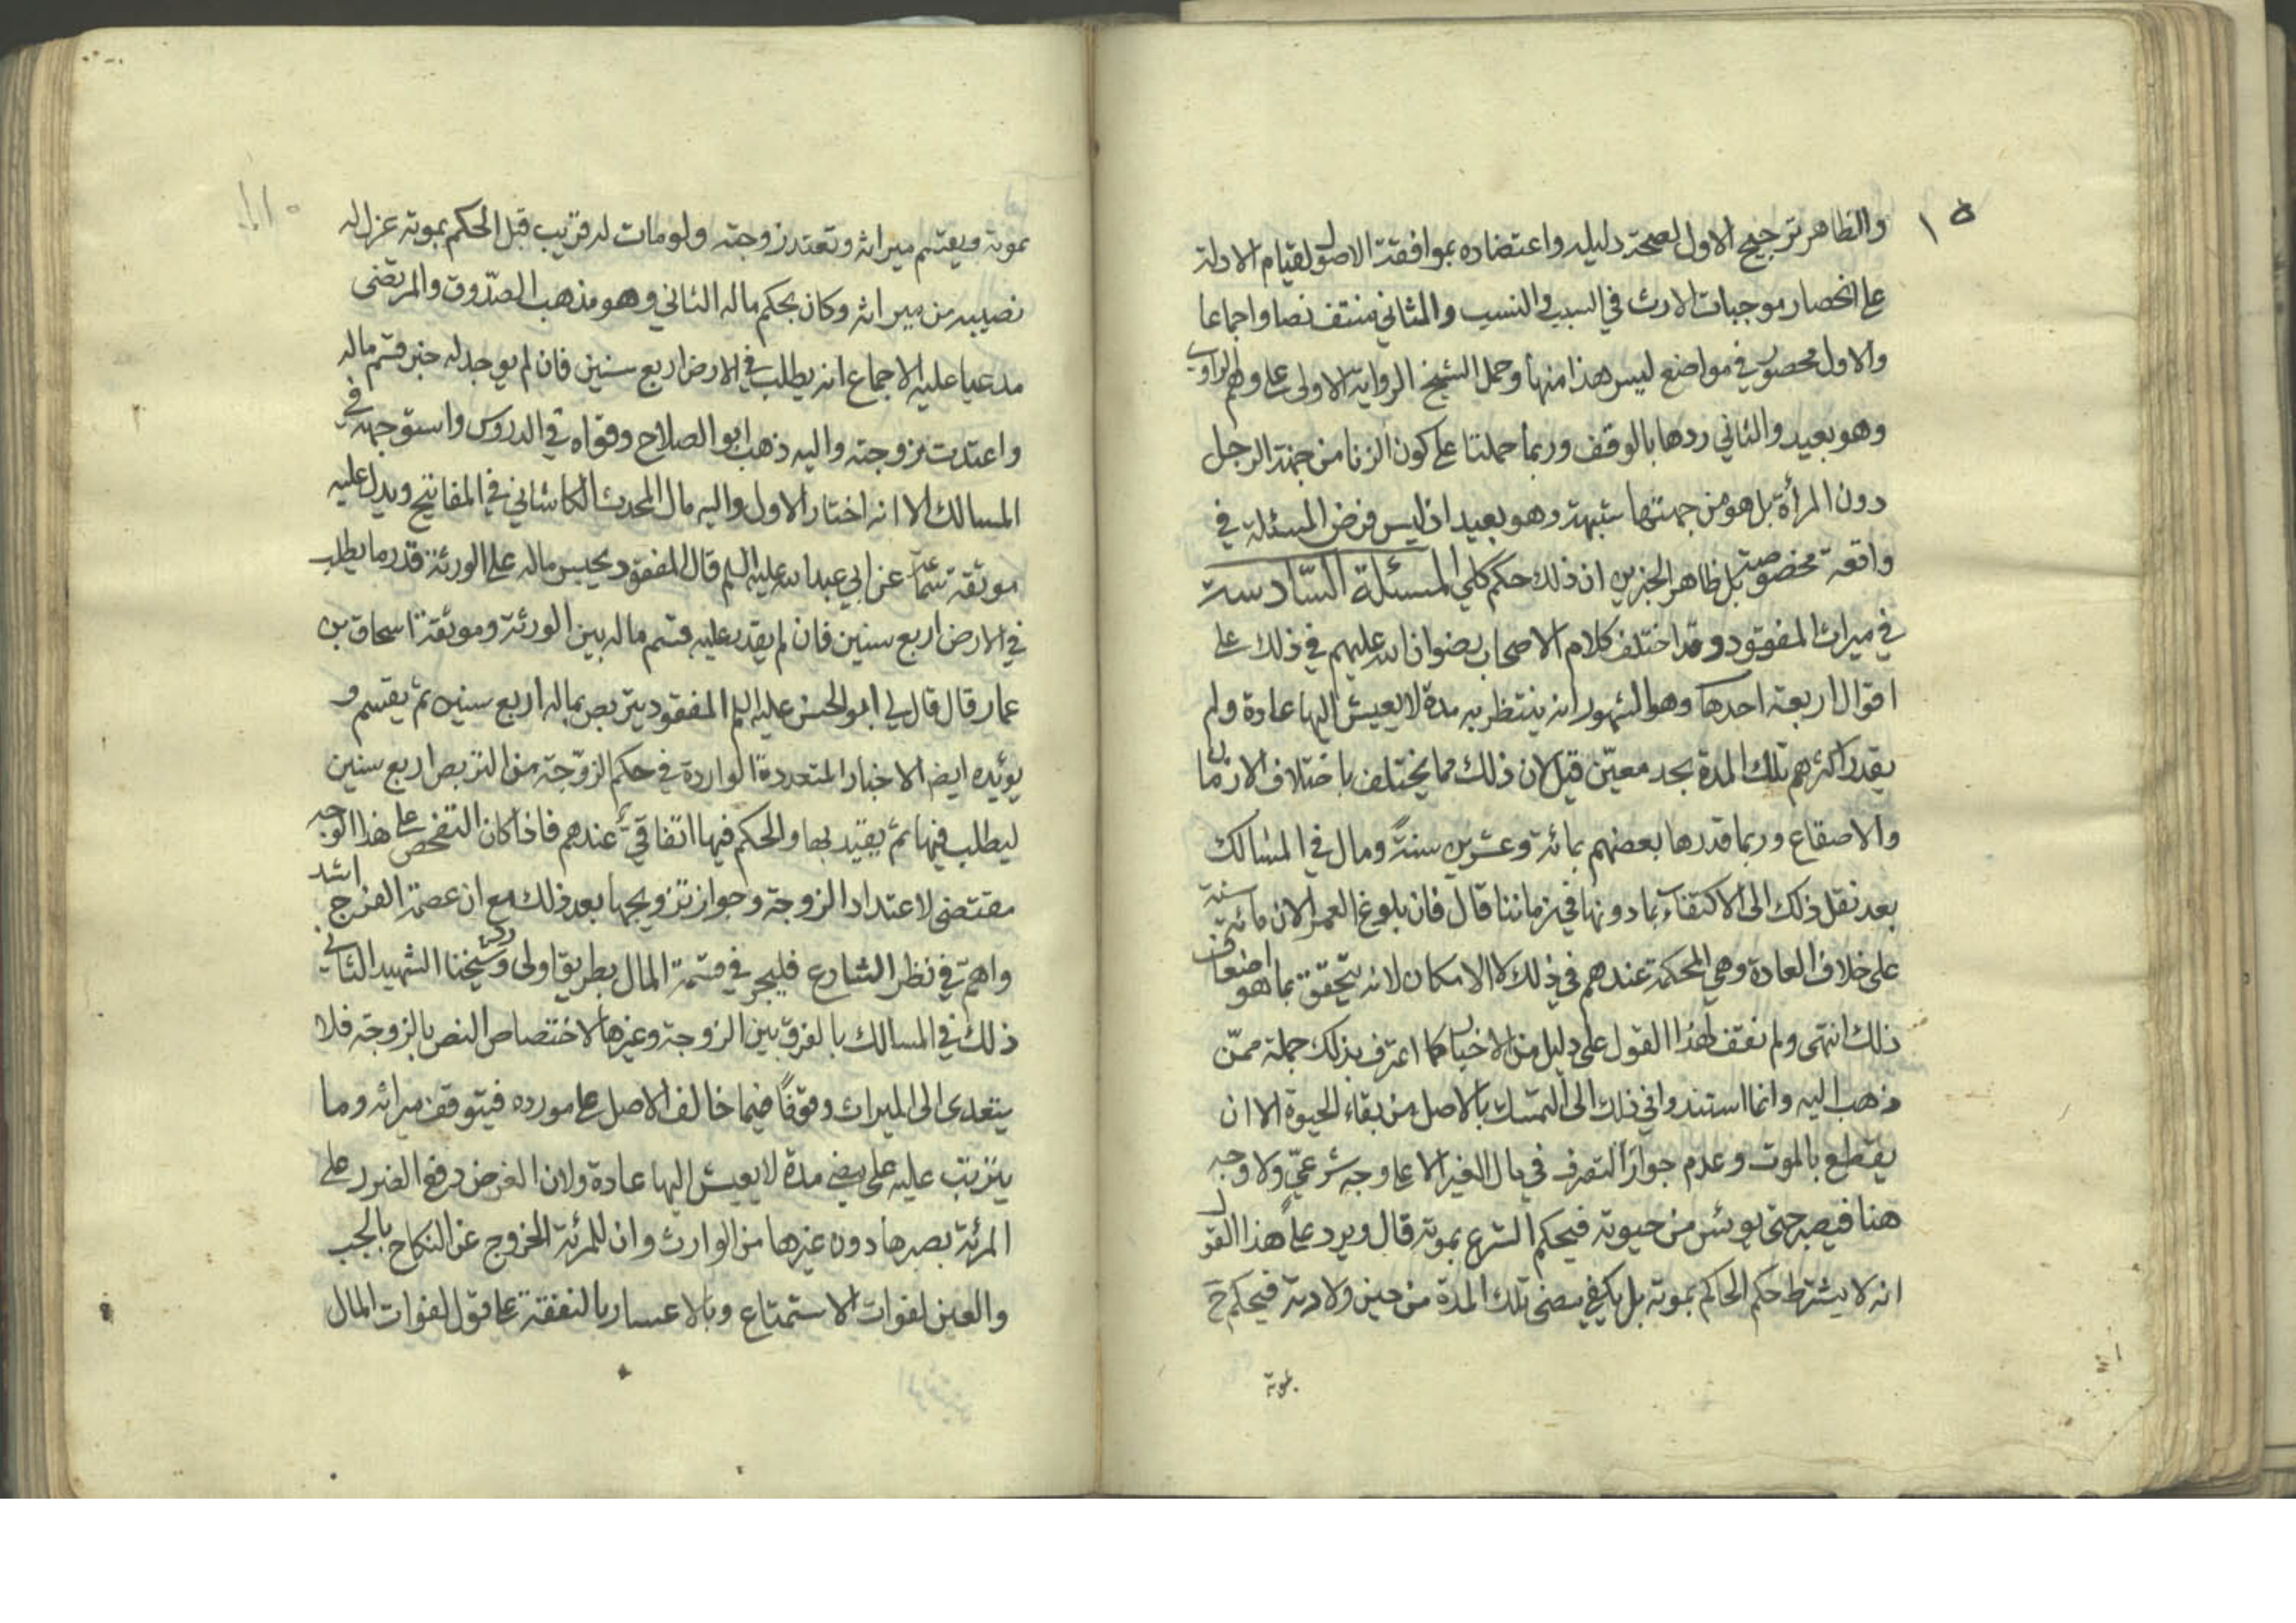 ١٥
والظاهر ترجيح الاول لصحة دليله واعتضاده بموافقة الاصول لقيام الادلة
على انحصار موجبات الارث في السبب والنسب والثاني منتف نصا واجماعا
والاول محصور في مواضع ليس هذا منها وحمل الشيخ الرواية الاولى على وهم الراوي
وهو بعيد والثاني ردها بالوقف وربما حملتا على كون الزنا من جهة الرجل
دون المرأة بل هو من جهتها شبهة وهو بعيد اذ ليس فرض المسئلة في
واقعة مخصوصة بل ظاهر الخبرين ان ذلك حكم كلي المسئلة السّادسة
في ميراث المفقود وقد اختلف كلام الاصحاب رضوان الله عليهم في ذلك على
اقوال اربعة احدها وهو المشهور انه ينتظر به مدة لا يعيش اليها عادة ولم
يقدر اكثرهم تلك المدة بحد معيّن قيل لان ذلك مما يختلف باختلاف الازمان
والاصقاع وربما قدرها بعضهم بمائة وعشرين سنةً ومال في المسالك
بعد نقل ذلك الى الاكتفاء بما دونها في زماننا قال فان بلوغ العمر الان مائة سنة
على خلاف العادة وهي المحكمة عندهم في ذلك لا الامكان لانه يتحقق بما هو اضعاف
ذلك انتهى ولم نقف لهذا القول على دليل من الاخبار كما اعترف بذلك جملة ممّن
ذهب اليه وانما استندوا في ذلك الى التمسك بالاصل من بقاء الحيوة الا ان
يقطع بالموت وعدم جواز التصرف في مال الغير الا على وجه شرعيّ ولا وجه
هنا فيصبر حتى يوئس من حيوته فيحكم الشرع بموته قال ويرد على هذا القول
انه لا يشترط حكم الحاكم بموته بل يكفي مضى تلك المدة من حين ولادته فيحكم ح
بموته
بموته ويقسم ميراثه وتعتد زوجته ولو مات له قريب قبل الحكم بموته عزل له
نصيبه من ميراثه وكان بحكم ماله الثاني وهو مذهب الصّدوق والمرتضى
مدعيا عليه الاجماع انه يطلب في الارض اربع سنين فان لم يوجد له خبر قسم ماله
واعتدت زوجته واليه ذهب ابو الصلاح وقواه في الدروس واستوجهه في
المسالك الا انه اختار الاول واليه مال المحدث الكاشاني في المفاتيح ويدل عليه
موثقة سماعة عن ابي عبد الله عليه السلم قال المفقود يحبس ماله على الورثة قدر ما يطلب
في الارض اربع سنين فان لم يقدر عليه قسم ماله بين الورثة وموثقة اسحاق بن
عمار قال قال لي ابو الحسن عليه السلم المفقود يتربص بماله اربع سنين ثم يقسم و
يؤيده ايضا الاخبار المتعددة الواردة في حكم الزوّجة من التربص اربع سنين
ليطلب فيها ثم يقيد بها والحكم فيها اتفاقيّ عندهم فاذا كان التفحص على هذا الوجه
مقتضى لاعتداد الزوجة وجواز تزويجها بعد ذلك مع ان عصمة الفرج اشد
واهم في نظر الشارع فليجر في قسمة المال بطريق اولى ورد شيخنا الشهيد الثاني
ذلك في المسالك بالفرق بين الزوجة وغيرها لاختصاص النص بالزوجة فلا
يتعدى الى الميراث وقوفًا فيما خالف الاصل على مورده فيتوقف ميراثه وما
يترتب عليه على مضي مدة لا يعيش اليها عادة ولان الغرض دفع الضرر على
المرئة بصبرها دون غيرها من الوارث وان للمرئة الخروج عن النكاح بالجب
والعنن لفوات الاستمتاع وبالاعسار بالنفقة على قول لفوات المال